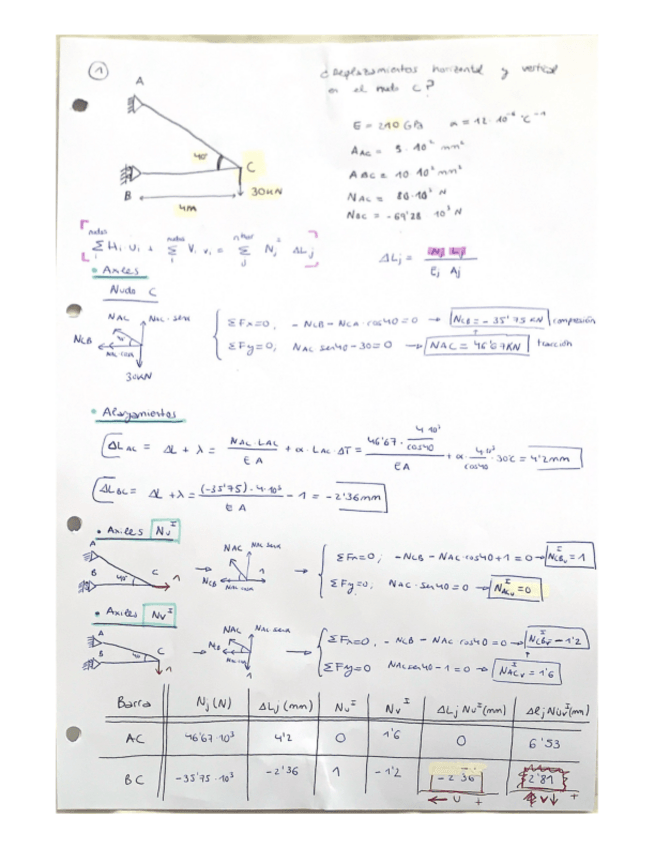 1
¿Desplazamientos horizontal y vertical
en el nudo C?
A
40°
C
30KN
B
4m
E = 210 GPa α = 12·10⁻⁶ °C⁻¹
A_AC = 5·10² mm²
A_BC = 10·10² mm²
N_AC = 80·10³ N
N_BC = -69'28 10³ N
nudos nudos nbar
Σ Hi Ui + Σ Vi vi = Σ Nj^I ΔLj
i i j
ΔLj = Nj Lj / Ej Aj
• Axiles
Nudo C
NAC
NAC·sen
NCB
30KN
ΣFx=0; -NCB - NCA·cos40 = 0 → NCB = -35'75 KN compresión
ΣFy=0; NAC sen40 - 30 = 0 → NAC = 46'67KN tracción
• Alargamientos
ΔL AC = ΔL + λ = NAC·LAC / EA + α·LAC·ΔT = 46'67· 4·10³/cos40 / EA + α· 4·10³/cos40 ·30°C = 4'2mm
ΔL BC = ΔL + λ = (-35'75)·4·10³ / EA - 1 = -2'36mm
• Axiles Nu^I
A
B
40°
C
1
NAC
NCB
1
ΣFx=0; -NCB - NAC·cos40 + 1 = 0 → N^I CBu = 1
ΣFy=0; NAC·sen40 = 0 → N^I ACu = 0
• Axiles Nv^I
A
B
40°
C
1
NAC
1
ΣFx=0, -NCB - NAC cos40 = 0 → N^I CBv = -1'2
ΣFy=0 NAC sen40 - 1 = 0 → N^I ACv = 1'6
Barra Nj (N) ΔLj (mm) Nu^I Nv^I ΔLj Nu^I (mm) ΔLj Nv^I (mm)
AC 46'67·10³ 4'2 0 1'6 0 6'53
BC -35'75·10³ -2'36 1 -1'2 -2'36 2'81
← U +
V ↓ +